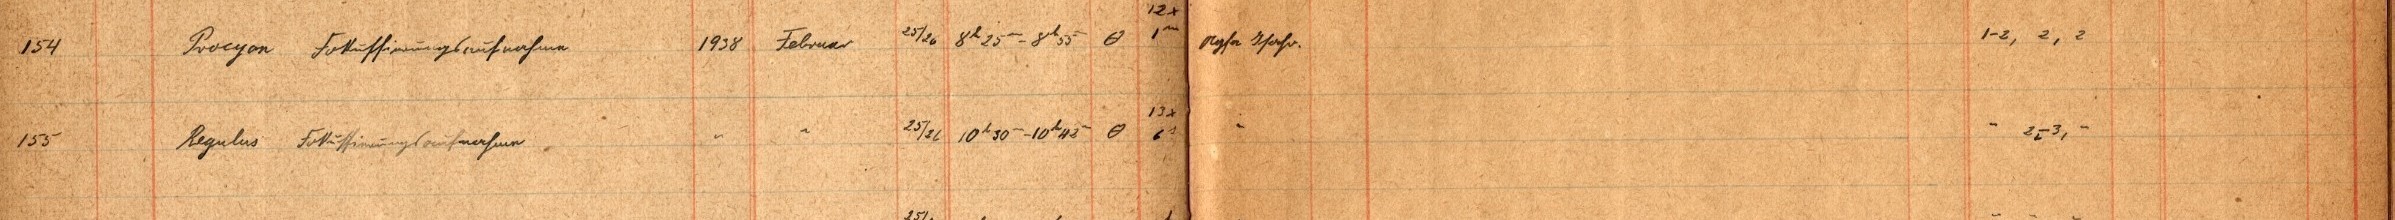 12x
154 Procyon Fokussierungsaufnahme 1938 Februar 25/26 8h 25m - 8h 55m θ 1m 1-2, 2, 2
13x
155 Regulus Fokussierungsaufnahme " " 25/26 10h 30m - 10h 42m θ 6s " " 2-3, "
25/